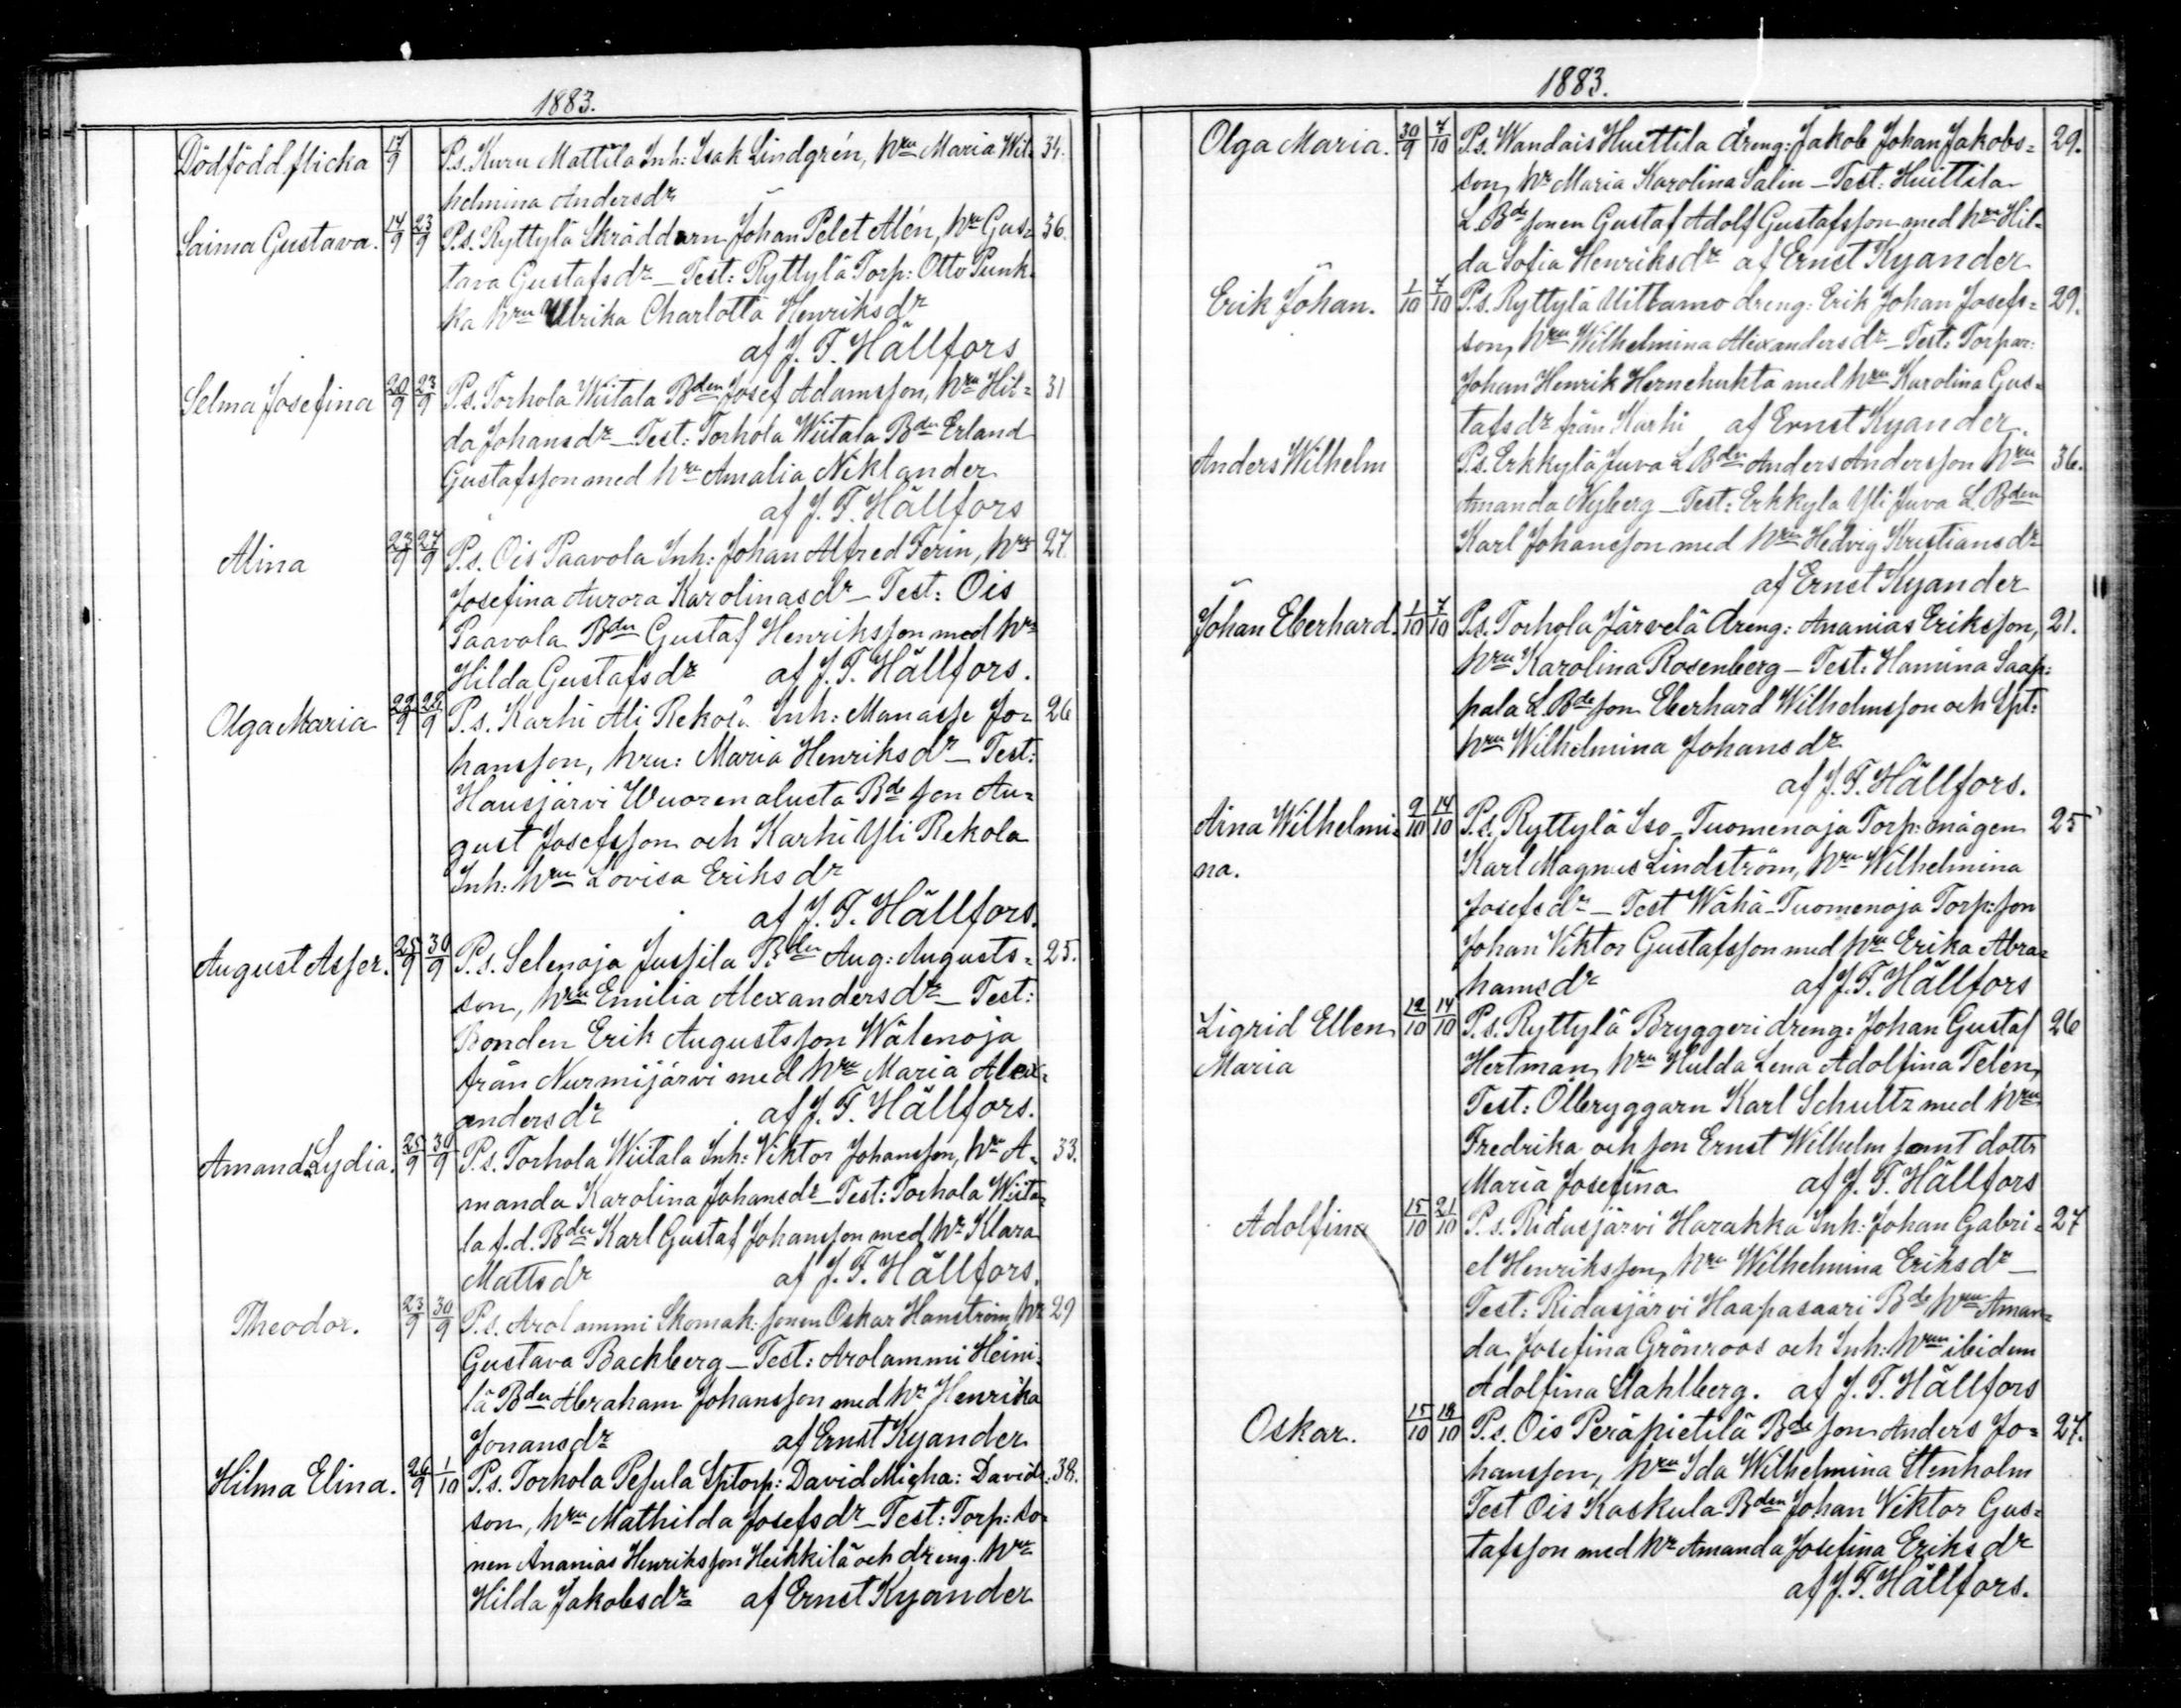 1883.
Dödfödd flicka 17/9 P.s. Kuru Mattila Inh: Isak Lindgrén, hru Maria Wil= 34.
helmina Andersdr
Saima Gustava. 14/9 23/9 P.s. Ryttylä Skräddarn Johan Pelet Alén, hru Gus= 36.
tava Gustafsdr – Test: Ryttylä Torp: Otto Punk
ka hru Ulrika Charlotta Henriksdr
af J. F. Hällfors
Selma Josefina 20/9 23/9 P.s. Torhola Wiitala Bden Josef Adamsson, hru Hil= 31
da Johansdr – Test: Torhola Wiitala Bdn Erland
Gustafsson med hru Amalia Niklander
af J. F. Hällfors
Alina 23/9 27/9 P.s. Ois Paavola Inh: Johan Alfred Ferin, hru 27.
Josefina Aurora Karolinasdr – Test: Ois
Paavola Bdn Gustaf Henriksson med hru
Hilda Gustafsdr af J. F. Hällfors.
Olga Maria 22/9 29/9 P.s. Karhi Ali Rekola Inh: Manasse Jo= 26
hansson, hru: Maria Henriksdr – Test:
Hausjärvi Wuorenalusta Bde son Au=
gust Josefsson och Karhi Yli Rekola
Inh: hru Lovisa Eriksdr
af J. F. Hällfors.
August Asser. 25/9 30/9 P.s. Selenoja Jussila Bdn Aug: Augusts= 25.
son, hru Emilia Alexandersdr – Test:
Bonden Erik Augustsson Wälenoja
från Nurmijärvi med hru Maria Alex=
andersdr af J. F. Hällfors.
Amanda Lydia. 25/9 30/9 P.s. Torhola Wiitala Inh: Viktor Johansson, hru A= 33.
manda Karolina Johansdr – Test: Torhola Wiita=
la f.d. Bdn Karl Gustaf Johansson med hr Klara
Mattsdr af J. F. Hällfors.
Theodor. 23/9 30/9 P.s. Arolammi Skomak: sonen Oskar Hanström, hr 29
Gustava Backberg – Test: Arolammi Heini=
lä Bdn Abraham Johansson med hr Henrika
Jonansdr af Ernst Kyander
Hilma Elina. 26/9 1/10 P.s. Torhola Pesula Sptorp: David Micha: Davids= 38.
son, hru Mathilda Josefsdr – Test: Torp: so=
nen Ananias Henriksson Heikkilä och dreng. hru
Hilda Jakobsdr af Ernst Kyander
1883.
Olga Maria. 30/9 7/10 P.s. Wandais Huittila dreng: Jakob Johan Jakobs= 29.
son, hr Maria Karolina Salin – Test: Huittila
L. Bde sonen Gustaf Adolf Gustafsson med hru Hil=
da Sofia Henriksdr af Ernst Kyander
Erik Johan. 1/10 7/10 P.s. Ryttylä Uittamo dreng: Erik Johan Josefs= 29.
son, hru Wilhelmina Alexandersdr – Test: Torpar:
Johan Henrik Hernehuhta med hru Karolina Gus=
tafsdr från Karhi af Ernst Kyander.
Anders Wilhelm P.s. Erkkylä Juva L Bdn Anders Andersson hru 36.
Amanda Nyberg – Test: Erkkyla Yli Juva L. Bden
Karl Johansson med hru Hedvig Kristiansdr
af Ernst Kyander
Johan Eberhard. 1/10 7/10 P.s. Torhola Järvelä dreng: Ananias Eriksson, 21.
hru Karolina Rosenberg – Test: Hamina Saap=
pala L. Bde son Eberhard Wilhelmsson och Spt:
hru Wilhelmina Johansdr
af J. F. Hällfors.
Aina Wilhelmi= 9/10 14/10 P.s. Ryttylä Iso-Tuomenoja Torp: mågen 25
na. Karl Magnus Lindström, hru Wilhelmina
Josefsdr – Test Wähä-Tuomenoja Torp: son
Johan Viktor Gustafsson med hru Erika Abra=
hamsdr af J. F. Hällfors
Sigrid Ellen 12/10 14/10 P.s. Ryttylä Bryggeri dreng: Johan Gustaf 26
Maria Hertman, hru Hulda Lena Adolfina Telén,
Test: Ölbryggarn Karl Schultz med hru
Fredrika och son Ernst Wilhelm samt dottr
Maria Josefina af J. F. Hällfors
Adolfina 15/10 21/10 P.s. Ridasjärvi Harakka Inh: Johan Gabri= 27
el Henriksson, hru Wilhelmina Eriksdr –
Test: Ridasjärvi Haapasaari Bde hru Aman=
da Josefina Grönroos och Inh: hru ibidem
Adolfina Stahlberg. af J. F. Hällfors
Oskar. 15/10 18/10 P.s. Ois Peräpietilä Bde son Anders Jo= 27.
hansson, hru Ida Wilhelmina Stenholm
Test Ois Kaskula Bden Johan Viktor Gus=
tafsson med hr Amanda Josefina Eriksdr
af J. F. Hällfors.